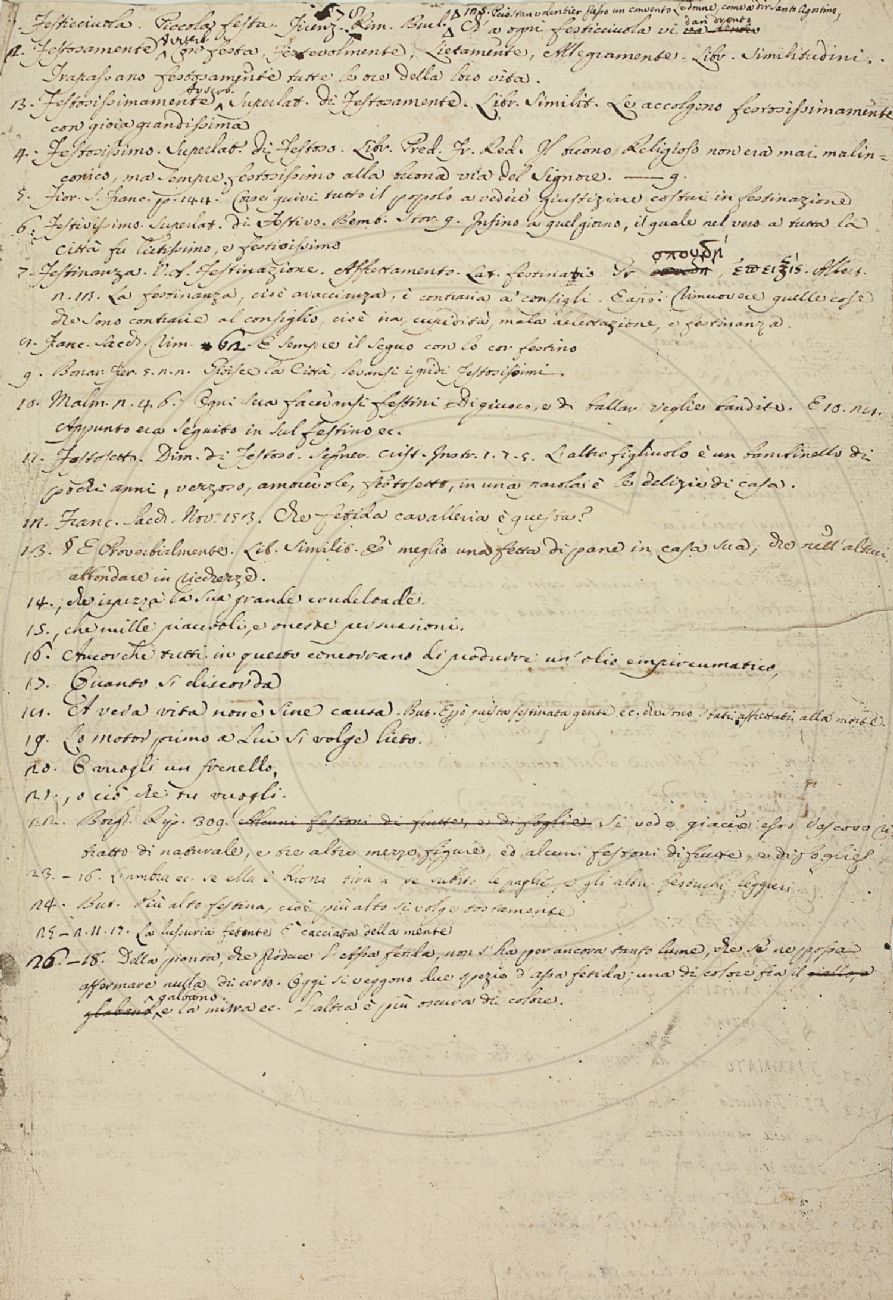 1. Festicciuola. Piccola festa. Firenz. Rim. Burl. Ch' a ogni festicciuola vi
dan drento
2. Festosamente Avverb. Con festa, Festevolmente, Lietamente, Allegramente. Libr. Similitudini.
Trapassano festosamente tutte le ore della loro vita.
13. Festosissimamente Superlat. di Festosamente. Libr. Similit. Le accolgono festosissimamente
con gioia grandissima
4. Festosissimo. Superlat. di Festoso. Libr. Pred. Fr. Red. Il buono Religioso non era mai malin=
conico, ma sempre festosissimo alla buona via del Signore. — 9.
5. Fior. S. Franc. p. 144. Corse quivi tutto il popolo a vedere giustiziare costui in festinazione
6. Festivissimo. Superlat. di Festivo. Bemb. Stor. 9. Insino a quel giorno, il quale nel vero a tutta la
Città fu lietissimo, e festivissimo
7. Festinanza. V. A. Festinazione. Affrettamento. Lat. festinatio. Gr. σπουδή, ἔπειξις. Albert.
2. 13. La festinanza, cioè avaccianza, è contraria a' consigli. E Rimuovere quelle cose
che sono contrarie al consiglio, cioè ira, cupidità, mala delettazione, e festinanza
Franc. Sacch. Rim. 62. E sempre il seguo con lo cor festino
9. Bonar. Fier. 5. Gioisce la Città, levansi i gridi Festosissimi.
10. Malm. 2. 46. Ogni sua facevansi festini Di giuoco, e di ballar veglie bandite. E 10.
Appunto era seguito in sul festino ec.
11. Festosetto. Dim. di Festoso. Segner. Crist. Instr. 1. 7. 5. L'altro figliuolo è un bambinello di
pochi anni, vezzoso, amorevole, festosetto, in una parola è le delizie di casa.
12. Franc. Sacch. Nov. 153. Che fetida cavalleria è questa?
13. § E Proverbialmente. Lib. Similit. E' meglio una fetta di pane in casa sua, che nell'altrui
abbondare in ricchezze.
14., che la sua grande crudeltade.
15., che mille piacevoli, e oneste persuasioni.
16. Ancorchè tutti in questo concorrano di produrre un' olio empireumatico,
17. Quanto si discorda
Et vera vita non è sine causa. But. Essi gente ec. che sono stati affrettati alla morte.
19. Lo motor primo a Lui si volge lieto.
20. E vuogli un frenello,
21., o ciò che tu vuogli.
22. Borgh. Rip. 309. Alcuni festoni di frutte, e di foglie Si vede giacere esso Vescovo ri
tratto di naturale, e tre altre mezze figure, ed alcuni festoni di frutte, e di foglie
23. – 16. L'ambra ec. se ella è buona tira a se subito le paglie, e gli altri festuchi leggieri
24. But. Più alto festina, cioè più alto si volge tostamente
25 – 2. 11. 17. La lussuria fetente è cacciata della mente
26. – 18. Della pianta, che produce l'assa fetida, non s'ha per ancora tanto lume, che se ne possa
affermare nulla di certo. Oggi si veggono due spezie d'assa fetida; una di colore fra il giallo, e
galbano, e la mirra ec. L'altra è più oscura di colore.